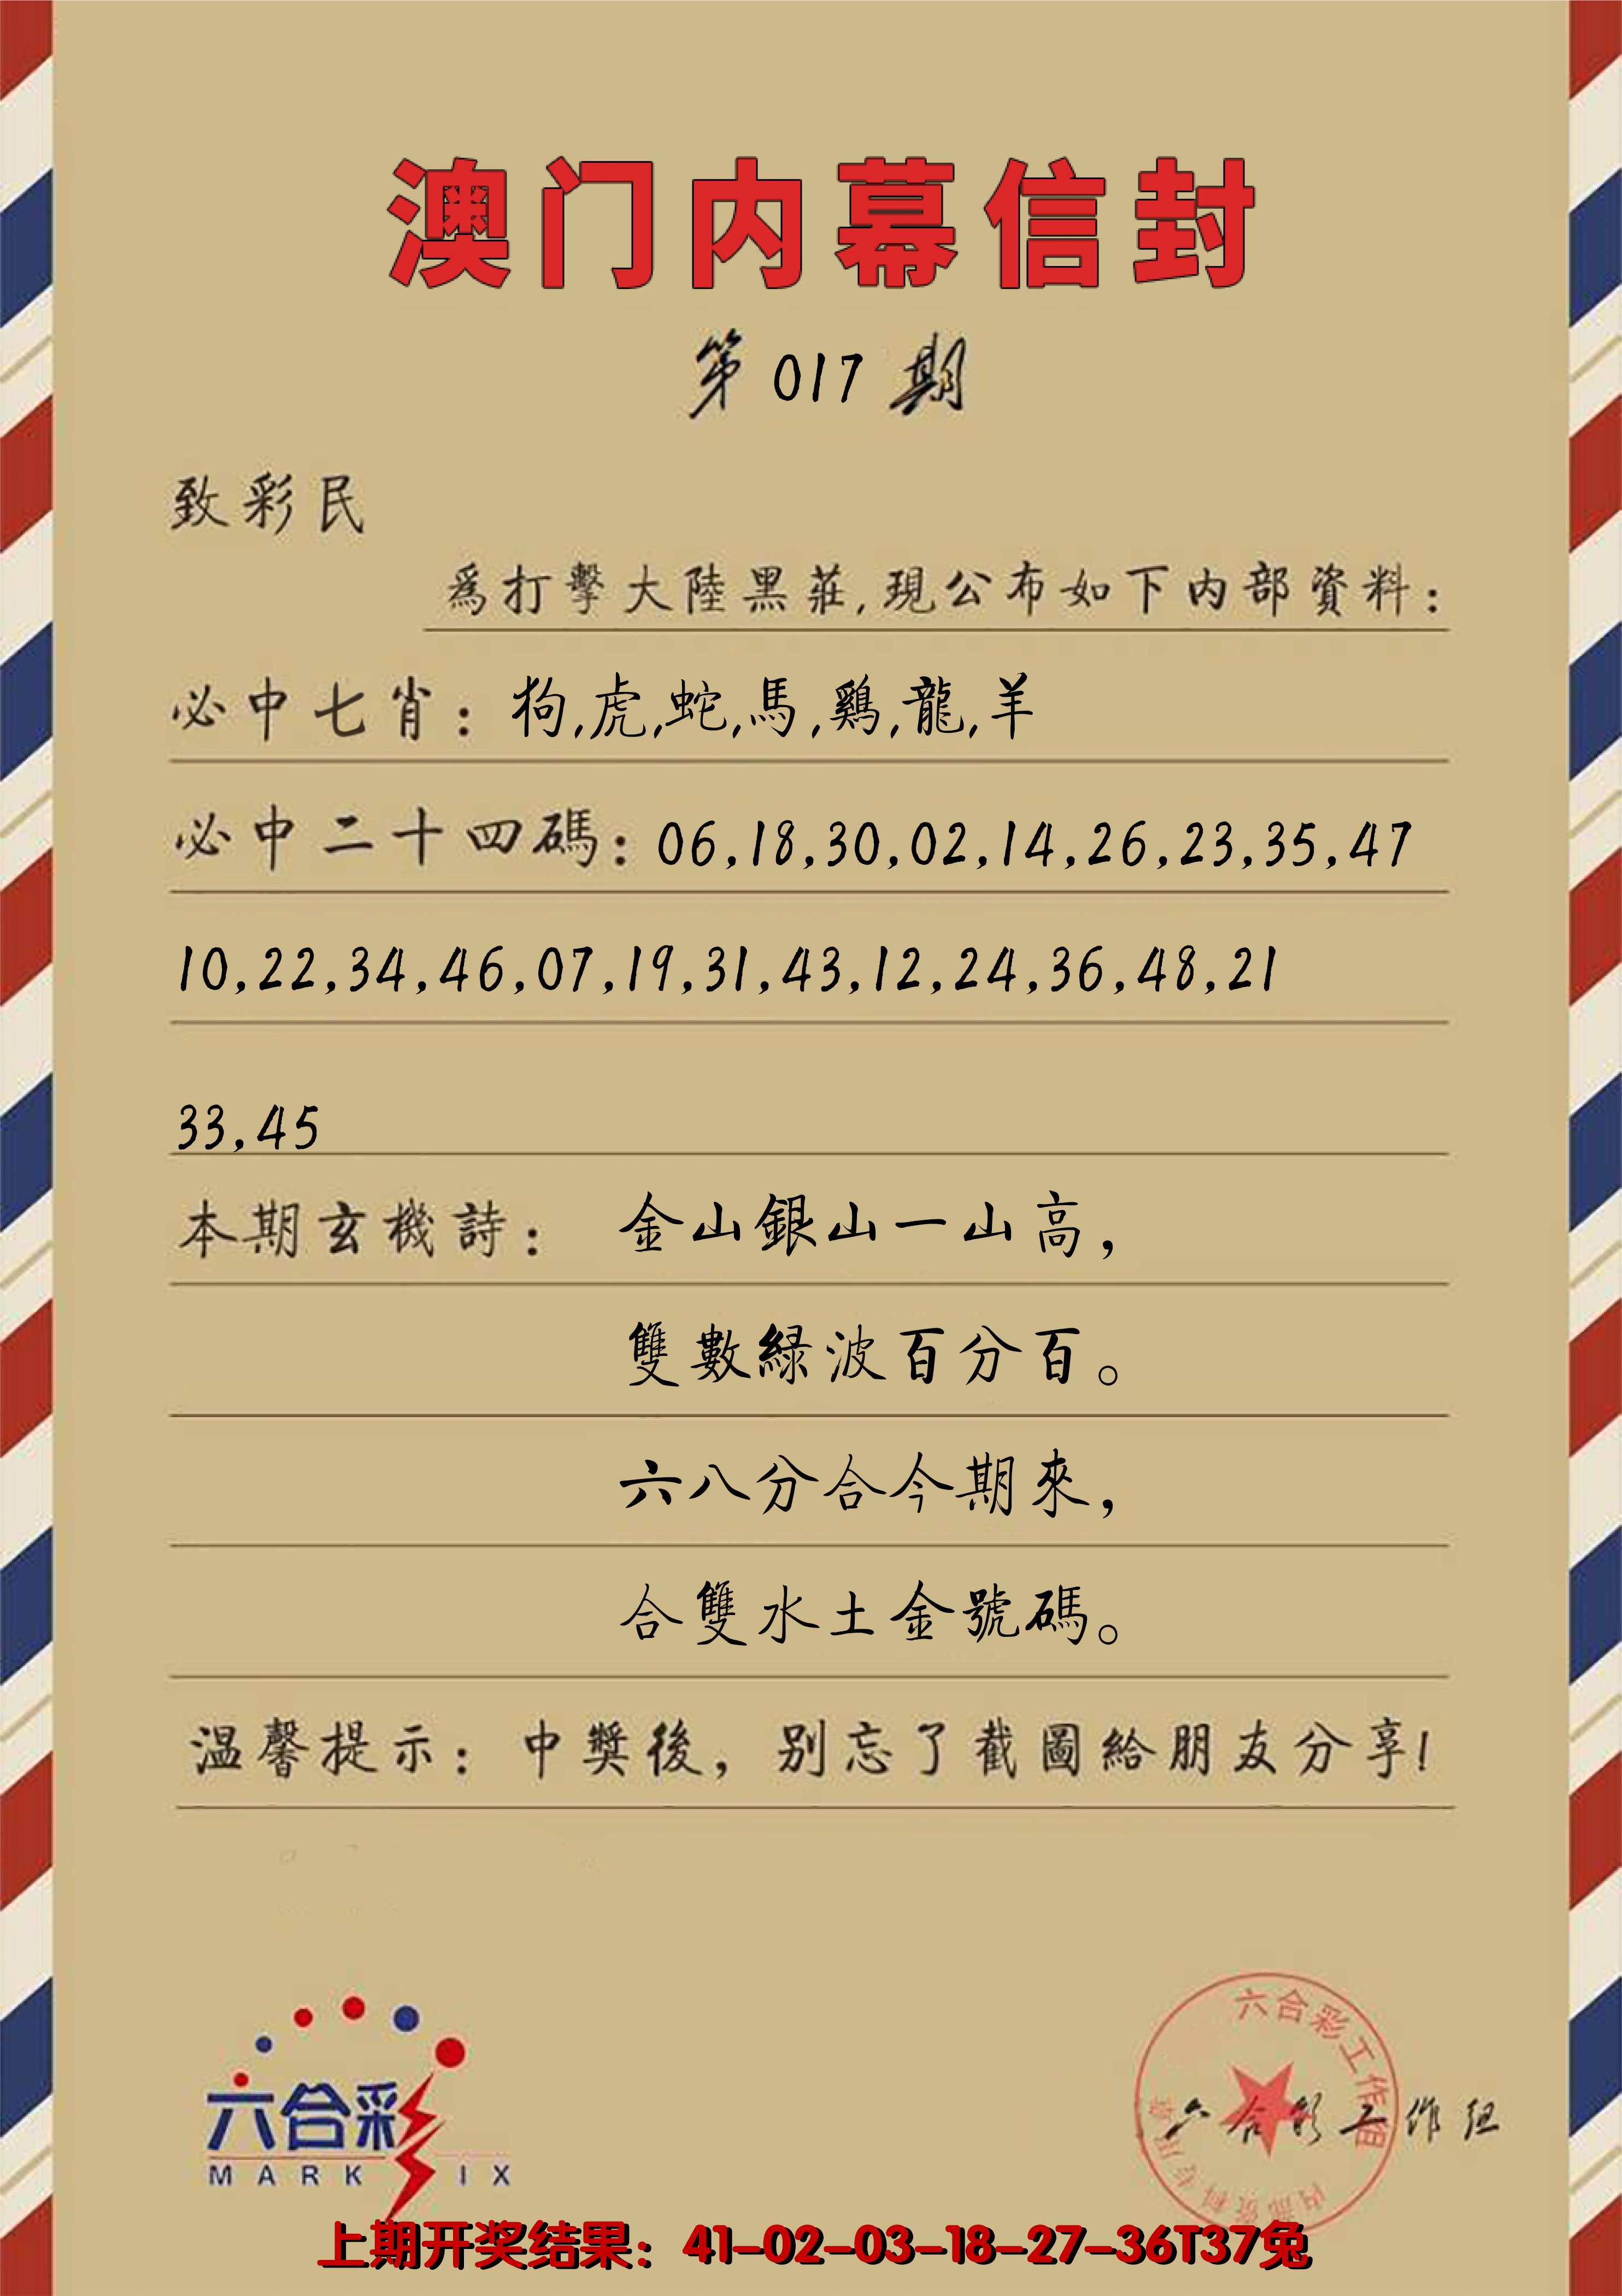 澳门内幕信封
第 017 期
致彩民
爲打擊大陸黑莊,現公布如下内部資料:
必中七肖: 狗,虎,蛇,馬,鷄,龍,羊
必中二十四碼: 06,18,30,02,14,26,23,35,47
10,22,34,46,07,19,31,43,12,24,36,48,21
33,45
本期玄機詩: 金山銀山一山高,
雙數緑波百分百。
六八分合今期來,
合雙水土金號碼。
温馨提示: 中獎後, 别忘了截圖給朋友分享!
六合彩
MARK IX
六合彩工作组
内部资料专用章
六合彩工作组
上期开奖结果: 41-02-03-18-27-36T37兔